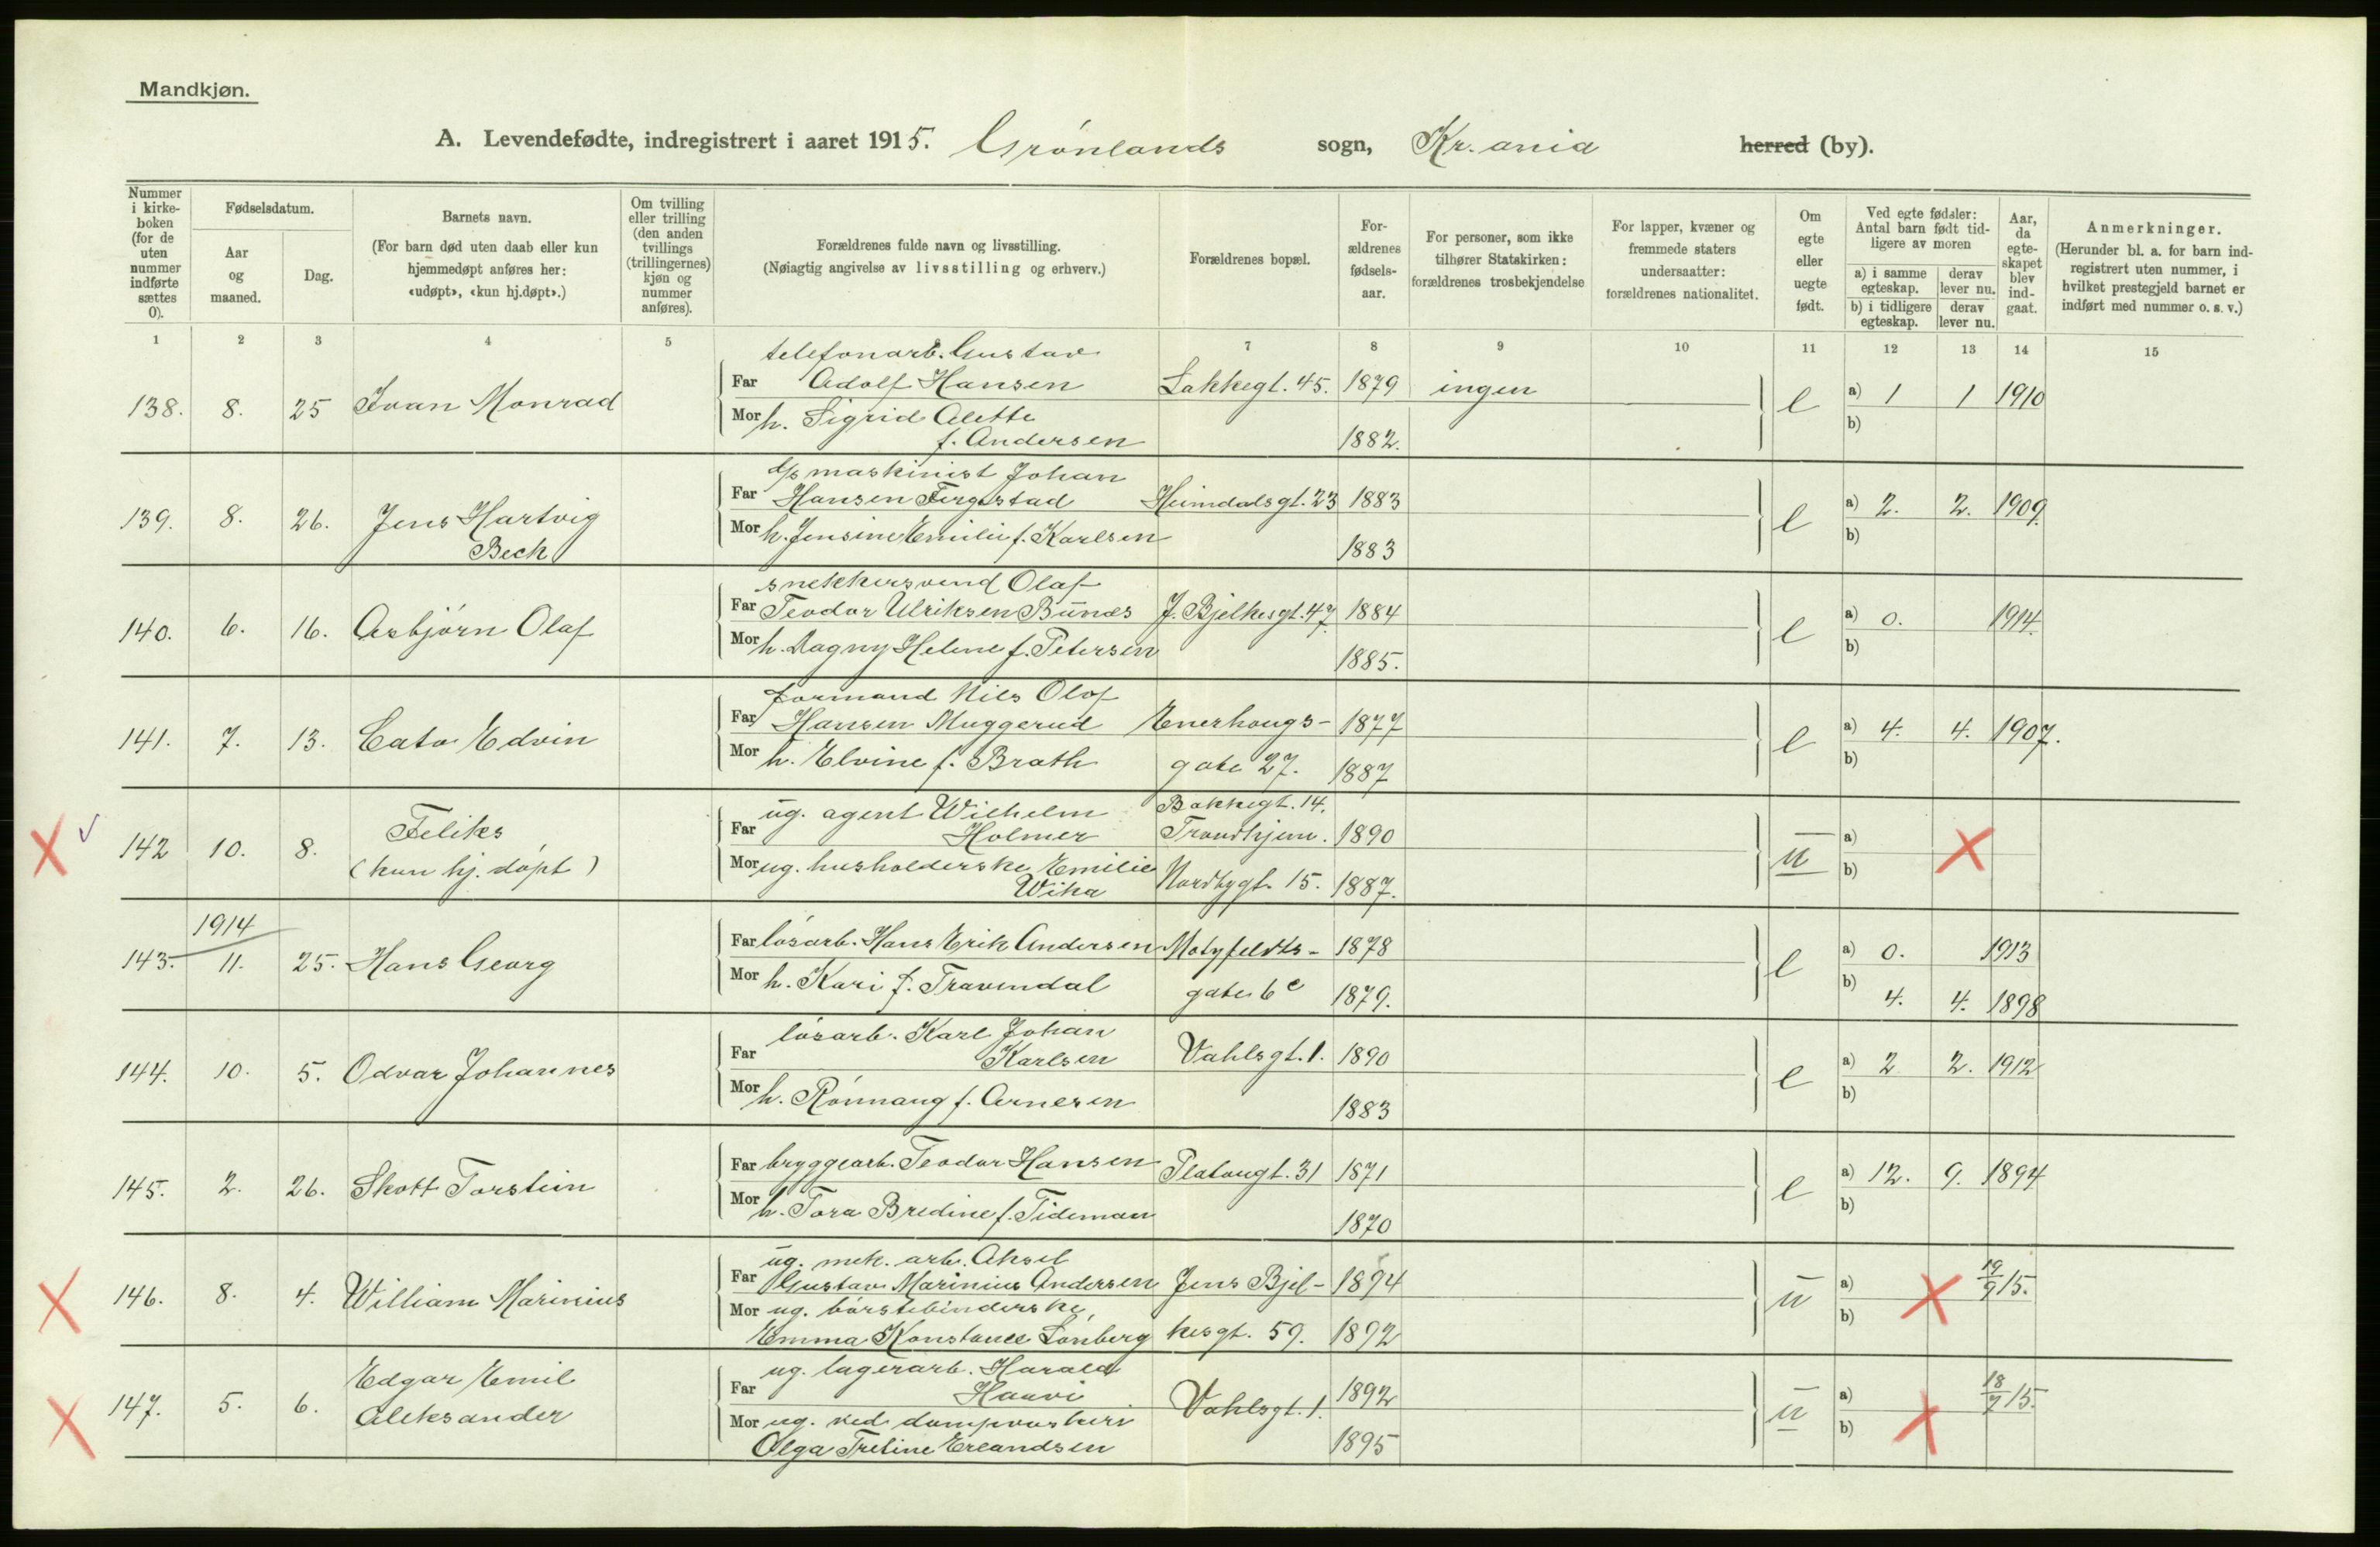 Mandkjøn.
A. Levendefødte, indregistrert i aaret 1915. Grønlands sogn, Kr.ania herred (by).
Nummer i kirkeboken (for de uten nummer indførte sættes 0).
Fødselsdatum.
Aar og maaned.
Dag.
Barnets navn.
(For barn død uten daab eller kun hjemmedøpt anføres her: «udøpt», «kun hj.døpt».)
Om tvilling eller trilling (den anden tvillings (trillingernes) kjøn og nummer anføres).
Forældrenes fulde navn og livsstilling.
(Nøiagtig angivelse av livsstilling og erhverv.)
Forældrenes bopæl.
Forældrenes fødselsaar.
For personer, som ikke tilhører Statskirken: forældrenes trosbekjendelse
For lapper, kvæner og fremmede staters undersaatter: forældrenes nationalitet.
Om egte eller uegte født.
Ved egte fødsler: Antal barn født tidligere av moren
a) i samme egteskap.
derav lever nu.
b) i tidligere egteskap.
derav lever nu.
Aar, da egteskapet blev indgaat.
Anmerkninger.
(Herunder bl. a. for barn indregistrert uten nummer, i hvilket prestegjeld barnet er indført med nummer o. s. v.)
1 2 3 4 5 7 8 9 10 11 12 13 14 15
telefonarb. Gustav
138. 8. 25 Ivan Monrad Far Adolf Hansen Lakkegt. 45. 1879 ingen e a) 1 1 1910
Mor h. Sigrid Alette
f. Andersen 1882. b)
d/s maskinist Johan
139. 8. 26. Jens Hartvig Far Hansen Fergestad Heimdalsgt. 23 1883 e a) 2. 2. 1909.
Bech Mor h. Jensine Emilie f. Karlsen 1883 b)
snekkersvend Olaf
140. 6. 16. Asbjørn Olaf Far Teodor Ulriksen Bunæs J. Bjelkesgt. 47. 1884 e a) 0. 1914.
Mor h. Dagny Helene f. Petersen 1885. b)
formand Nils Olof
141. 7. 13. Cato Edvin Far Hansen Muggerud Enerhougs- 1877 e a) 4. 4. 1907.
Mor h. Elvine f. Brath gate 27. 1887 b)
ug. agent Wilhelm Bakkegt. 14.
142 10. 8. Feliks Far Holmer Trondhjem. 1890 u a)
(kun hj. døpt) Mor ug. husholderske Emilie
Wika Nordbygt. 15. 1887. b)
1914
143. 11. 25. Hans Georg Far løsarb. Hans Erik Andersen Motzfeldts- 1878 e a) 0. 1913
Mor h. Kari f. Travendal gate 6c 1879. b) 4. 4. 1898
løsarb. Karl Johan
144. 10. 5. Odvar Johannes Far Karlsen Vahlsgt. 1. 1890 e a) 2 2. 1912
Mor h. Rønnaug f. Arnesen 1883 b)
145. 2. 26. Skott Torstein Far bryggearb. Teodor Hansen Platougt. 31 1871 e a) 12. 9. 1894
Mor h. Tora Bredine f. Tideman 1870 b)
ug. mek. arb. Aksel
146. 8. 4. William Marinius Far Gustav Marinius Andersen Jens Bjel- 1894 u a) 19/9 15.
Mor ug. børstebinderske
Emma Konstance Lønberg kesgt. 59. 1892 b)
ug. lagerarb. Harald
147. 5. 6. Edgar Emil Far Haavi Vahlsgt. 1. 1892 u a) 18/7 15.
Aleksander Mor ug. ved dampvaskeri
Olga Treline Erlandsen 1895 b)